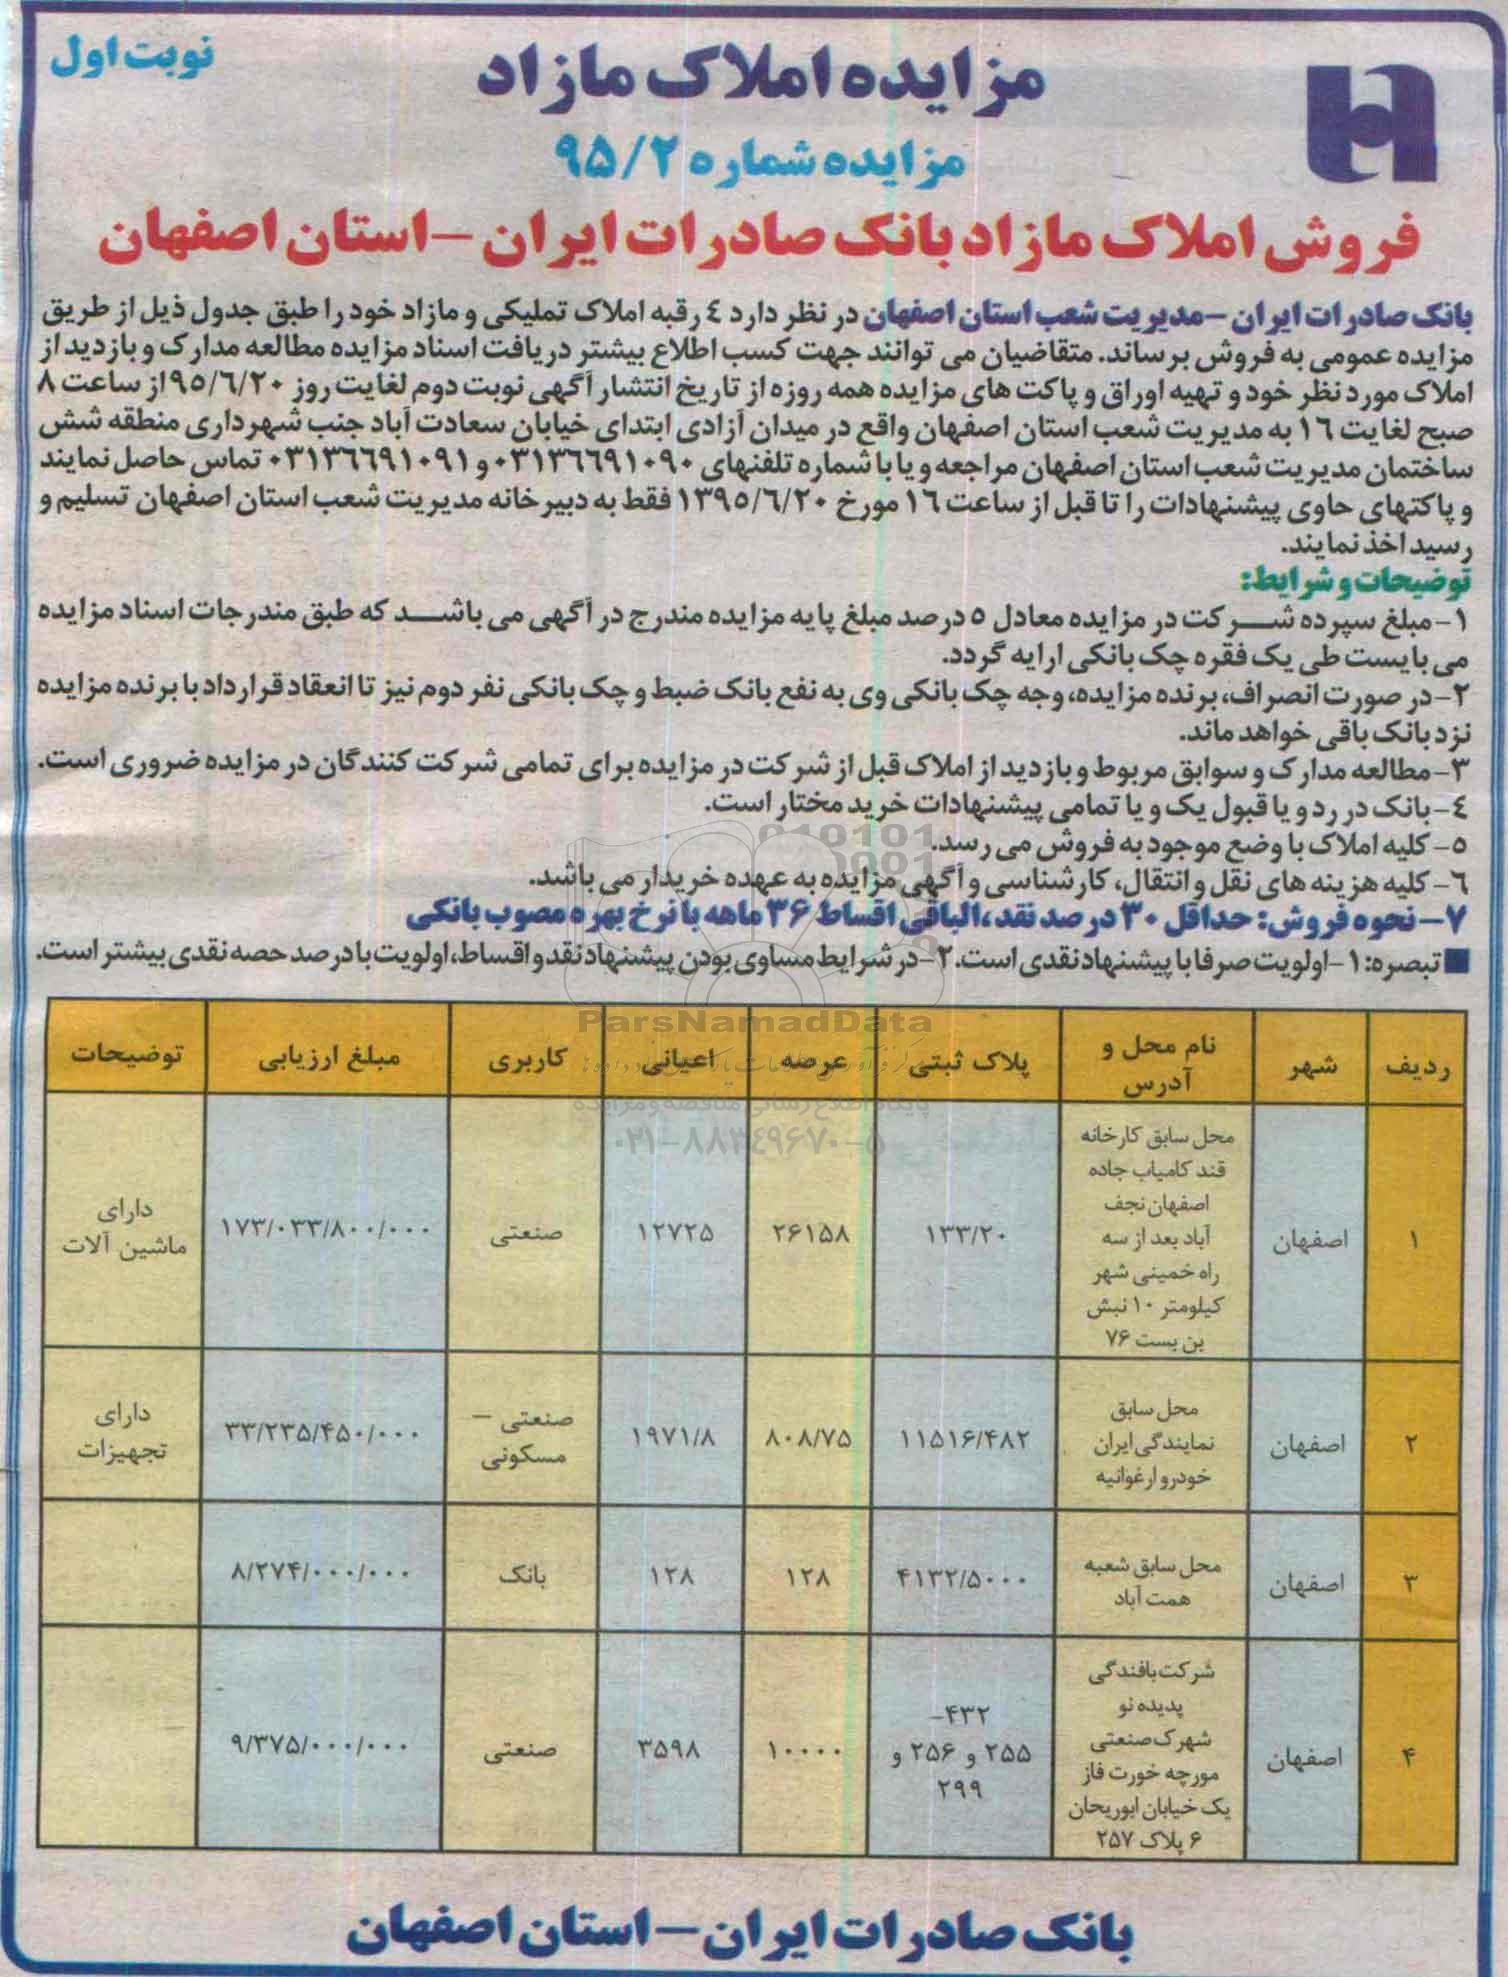 نوبت اول
مزایده املاک مازاد
مزایده شماره ۹۵/۲
فروش املاک مازاد بانک صادرات ایران – استان اصفهان
بانک صادرات ایران – مدیریت شعب استان اصفهان در نظر دارد ٤ رقبه املاک تملیکی و مازاد خود را طبق جدول ذیل از طریق
مزایده عمومی به فروش برساند. متقاضیان می توانند جهت کسب اطلاع بیشتر دریافت اسناد مزایده مطالعه مدارک و بازدید از
املاک مورد نظر خود و تهیه اوراق و پاکت های مزایده همه روزه از تاریخ انتشار آگهی نوبت دوم لغایت روز ۹۵/٦/۲۰ از ساعت ۸
صبح لغایت ۱٦ به مدیریت شعب استان اصفهان واقع در میدان آزادی ابتدای خیابان سعادت آباد جنب شهرداری منطقه شش
ساختمان مدیریت شعب استان اصفهان مراجعه و یا با شماره تلفنهای ۰۳۱۳٦٦۹۱۰۹۰ و ۰۳۱۳٦٦۹۱۰۹۱ تماس حاصل نمایند
و پاکتهای حاوی پیشنهادات را تا قبل از ساعت ۱٦ مورخ ۱۳۹۵/٦/۲۰ فقط به دبیرخانه مدیریت شعب استان اصفهان تسلیم و
رسید اخذ نمایند.
توضیحات و شرایط:
۱- مبلغ سپرده شرکت در مزایده معادل ۵ درصد مبلغ پایه مزایده مندرج در آگهی می باشد که طبق مندرجات اسناد مزایده
می بایست طی یک فقره چک بانکی ارایه گردد.
۲- در صورت انصراف، برنده مزایده، وجه چک بانکی وی به نفع بانک ضبط و چک بانکی نفر دوم نیز تا انعقاد قرارداد با برنده مزایده
نزد بانک باقی خواهد ماند.
۳- مطالعه مدارک و سوابق مربوط و بازدید از املاک قبل از شرکت در مزایده برای تمامی شرکت کنندگان در مزایده ضروری است.
٤- بانک در رد و یا قبول یک و یا تمامی پیشنهادات خرید مختار است.
۵- کلیه املاک با وضع موجود به فروش می رسد.
٦- کلیه هزینه های نقل و انتقال، کارشناسی و آگهی مزایده به عهده خریدار می باشد.
۷- نحوه فروش: حداقل ۳۰ درصد نقد، الباقی اقساط ۳۶ ماهه با نرخ بهره مصوب بانکی
■ تبصره: ۱- اولویت صرفا با پیشنهاد نقدی است. ۲- در شرایط مساوی بودن پیشنهاد نقد و اقساط، اولویت با درصد حصه نقدی بیشتر است.
ParsNamadData
پایگاه اطلاع رسانی مناقصه و مزایده
۰۲۱-۸۸۳۴۹۶۷۰-۵
ردیف | شهر | نام محل و آدرس | پلاک ثبتی | عرصه | اعیانی | کاربری | مبلغ ارزیابی | توضیحات
۱ | اصفهان | محل سابق کارخانه قند کامیاب جاده اصفهان نجف آباد بعد از سه راه خمینی شهر کیلومتر ۱۰ نبش بن بست ۷۶ | ۱۳۳/۲۰ | ۲۶۱۵۸ | ۱۲۷۲۵ | صنعتی | ۱۷۳/۰۳۳/۸۰۰/۰۰۰ | دارای ماشین آلات
۲ | اصفهان | محل سابق نمایندگی ایران خودرو ارغوانیه | ۱۱۵۱۶/۴۸۲ | ۸۰۸/۷۵ | ۱۹۷۱/۸ | صنعتی – مسکونی | ۳۳/۲۳۵/۴۵۰/۰۰۰ | دارای تجهیزات
۳ | اصفهان | محل سابق شعبه همت آباد | ۴۱۳۲/۵۰۰۰ | ۱۲۸ | ۱۲۸ | بانک | ۸/۲۷۴/۰۰۰/۰۰۰
۴ | اصفهان | شرکت بافندگی پدیده نو شهرک صنعتی مورچه خورت فاز یک خیابان ابوریحان ۶ پلاک ۲۵۷ | ۴۳۲- ۲۵۵ و ۲۵۶ و ۲۹۹ | ۱۰۰۰۰ | ۳۵۹۸ | صنعتی | ۹/۳۷۵/۰۰۰/۰۰۰
بانک صادرات ایران – استان اصفهان